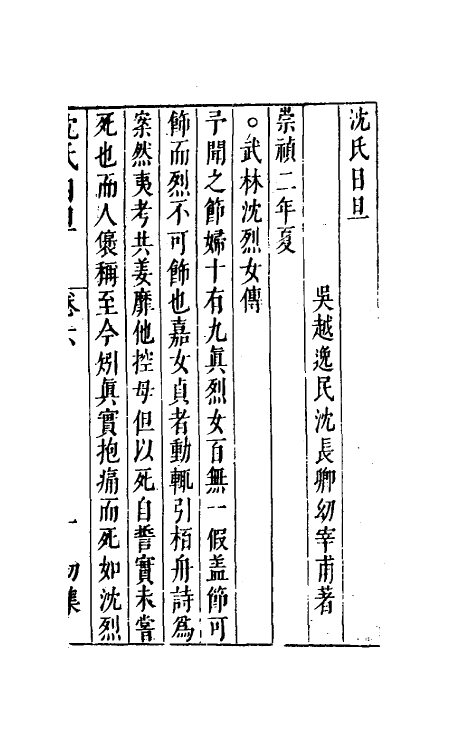 沈氏日旦
吳越逸民沈長卿幼宰甫著
崇禎二年夏
○武林沈烈女傳
予聞之節婦十有九眞烈女百無一假盖節可
飾而烈不可飾也嘉女貞者動輒引栢舟詩爲
案然夷考共姜靡他控母但以死自誓實未嘗
死也而人褒稱至今矧眞實抱痛而死如沈烈
沈氏日旦
卷六
一
初集